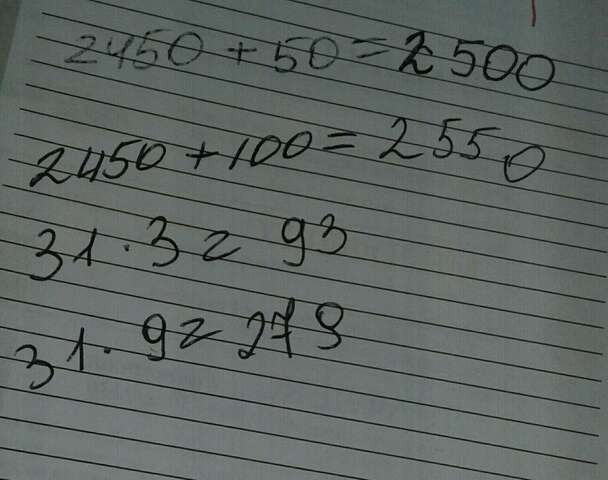 2450 + 50 = 2500
2450 + 100 = 2550
31 . 3 = 93
31 . 9 = 279